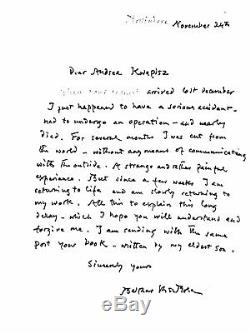 November 24th
Dear Andrea
arrived last december
I just happened to have a serious accident -
had to undergo an operation - and nearly
died. For several months I was cut from
the world - without any means of communicating
with the outside. A strange and rather painful
experience. But since a few weeks I am
returning to life and am slowly returning to
my work. All this to explain this long
delay - which I hope you will understand and
forgive me. I am sending with the same
post your book - written by my eldest son.
Sincerely yours